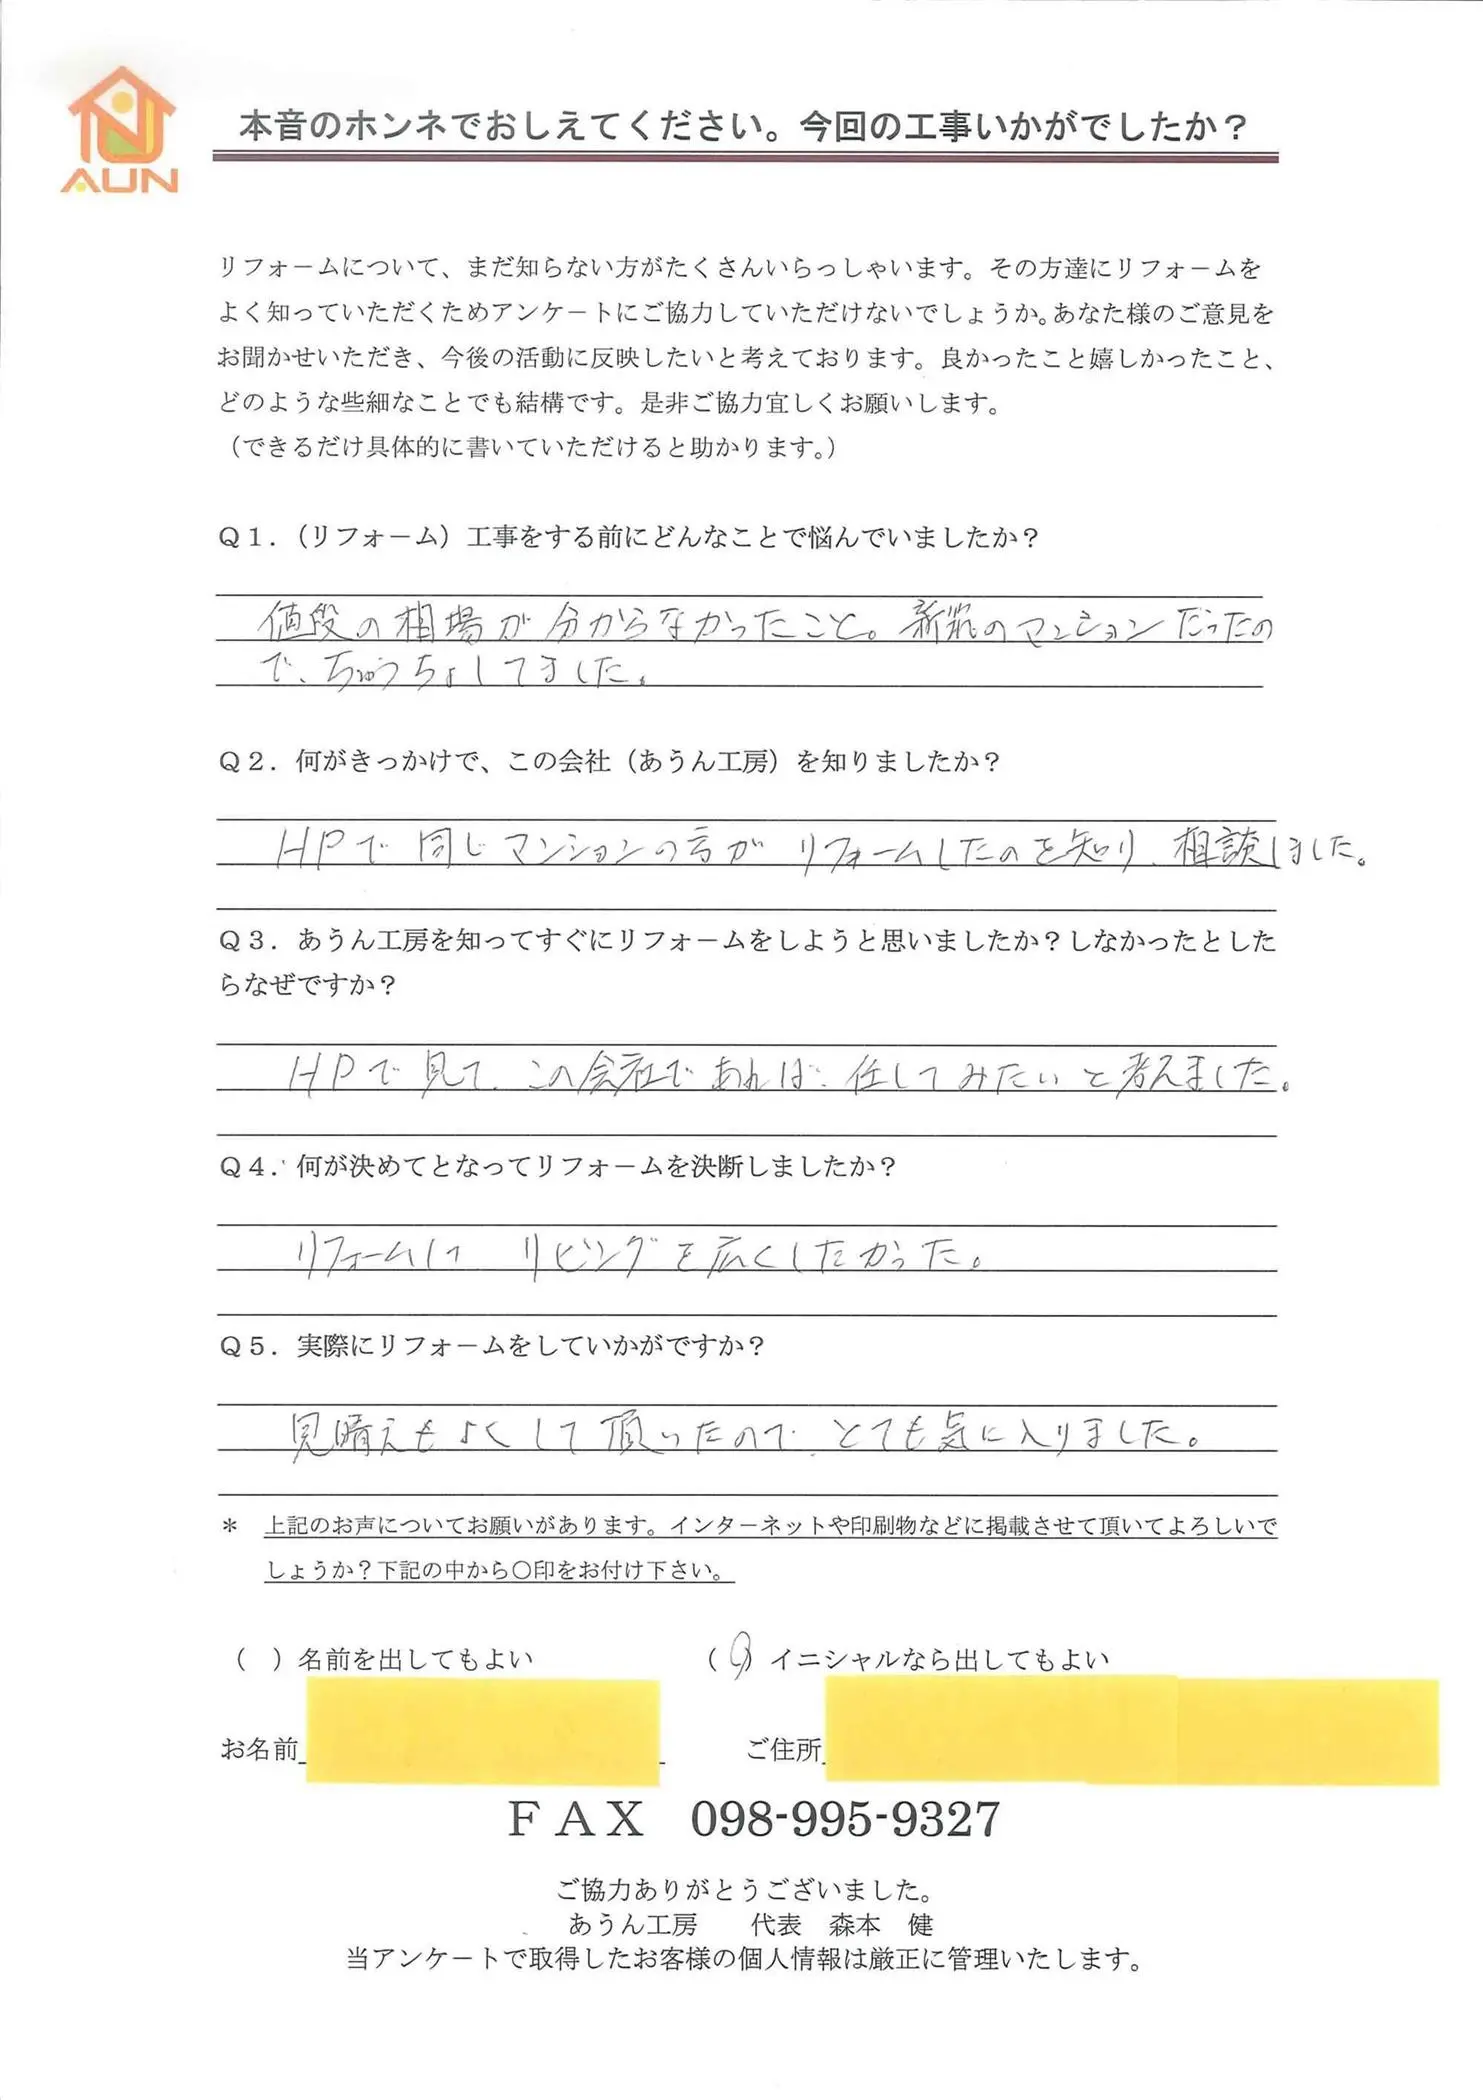 AUN
本音のホンネでおしえてください。今回の工事いかがでしたか？
リフォームについて、まだ知らない方がたくさんいらっしゃいます。その方達にリフォームを
よく知っていただくためアンケートにご協力していただけないでしょうか。あなた様のご意見を
お聞かせいただき、今後の活動に反映したいと考えております。良かったこと嬉しかったこと、
どのような些細なことでも結構です。是非ご協力宜しくお願いします。
（できるだけ具体的に書いていただけると助かります。）
Ｑ１．（リフォーム）工事をする前にどんなことで悩んでいましたか？
値段の相場が分からなかったこと。新築のマンションだったの
で、ちゅうちょしてました。
Ｑ２．何がきっかけで、この会社（あうん工房）を知りましたか？
HPで同じマンションの方がリフォームしたのを知り、相談しました。
Ｑ３．あうん工房を知ってすぐにリフォームをしようと思いましたか？しなかったとした
らなぜですか？
HPで見て、この会社であれば、任してみたいと考えました。
Ｑ４．何が決めてとなってリフォームを決断しましたか？
リフォームして リビングを広くしたかった。
Ｑ５．実際にリフォームをしていかがですか？
見晴えもよくして頂いたので、とても気に入りました。
＊ 上記のお声についてお願いがあります。インターネットや印刷物などに掲載させて頂いてよろしいで
しょうか？下記の中から○印をお付け下さい。
（ ）名前を出してもよい （○）イニシャルなら出してもよい
お名前 ご住所
ＦＡＸ 098-995-9327
ご協力ありがとうございました。
あうん工房 代表 森本 健
当アンケートで取得したお客様の個人情報は厳正に管理いたします。